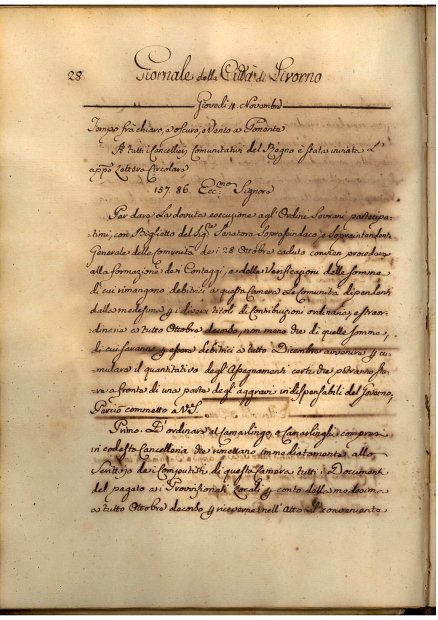 28 Giornale della Città di Livorno
Giovedì 4. Novembre
Tempo frà chiaro, e oscuro, e Vento a Ponente
A tutti i Cancellieri Comunitativi del Regno è stata inviata l'
appª Lettera Circolare
157. 86. Eccmo Signore
Per dare la dovuta esecuzione agl' Ordini Sovrani partecipa-
timi, con Biglietto del Sigre Senatore Soprassindaco, e Sopraintendente
Generale delle comunità de i 28 Ottobre caduto convien procedere
alla formazione dei Conteggi, e delle Verificazioni delle somme
di cui rimangono debitrici a questa Camera le Comunità dipendenti
dalla medesima p i diversi titoli di Contribuzioni ordinarie, e straor-
dinarie a tutto Ottobre decorso, non meno che di quelle somme,
di cui saranno p essere debitrici a tutto Dicembre avvenire p cu-
mulare il quantitativo degl' Assegnamenti certi che potranno sta-
re a fronte di una parte degl' aggravi indispensabili del Governo,
Perciò commetto a V.S.
Primo. D'ordinare al Camarlingo, o Camarlinghi compresi
in codesta Cancelleria che rimettano immediatamente allo
Scrittojo dei Computisti di questa Camera tutti i Documenti
del pagato ai Provisionati Locali p conto della medesima
a tutto Ottobre decorso p riceverne nell' Atto il conveniente